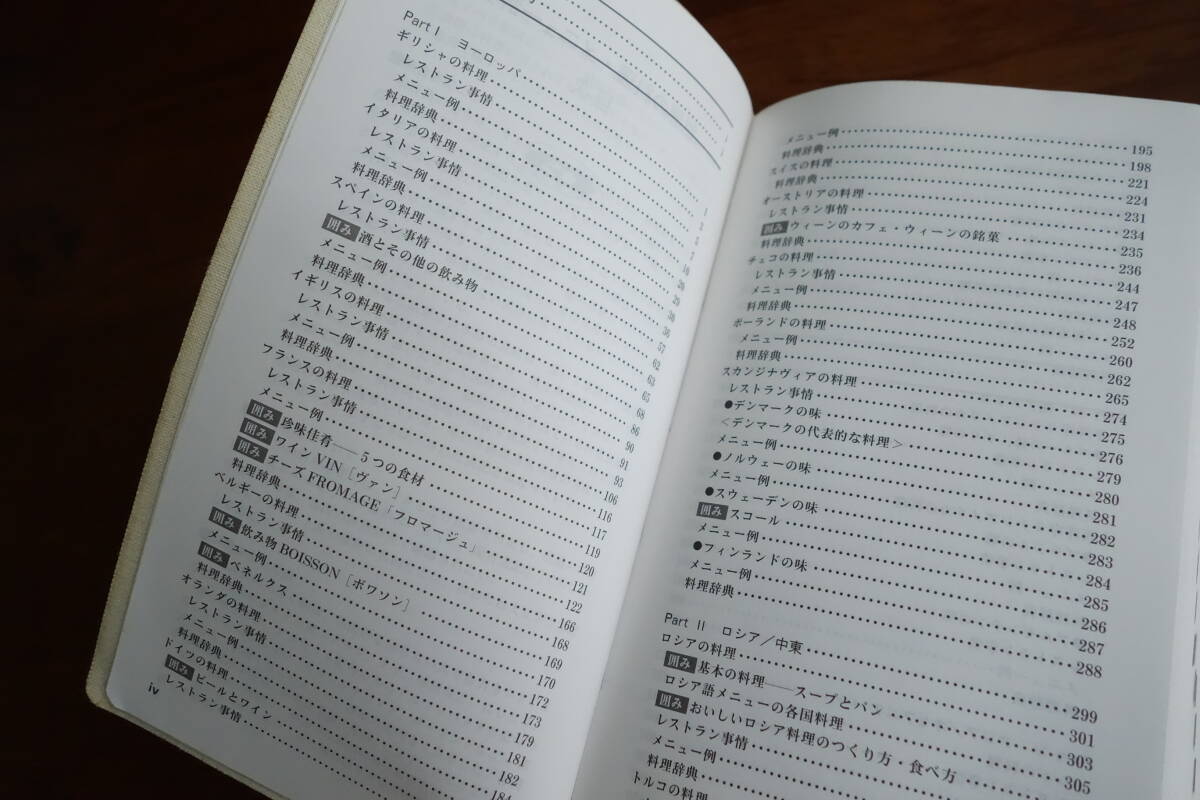 Part I　ヨーロッパ
ギリシャの料理
レストラン事情
メニュー例
料理辞典
イタリアの料理
レストラン事情
メニュー例
料理辞典
スペインの料理 57
レストラン事情 62
囲み 酒とその他の飲み物 63
メニュー例 65
料理辞典 68
イギリスの料理 86
レストラン事情 90
メニュー例 91
料理辞典 93
フランスの料理 106
レストラン事情 116
メニュー例 117
囲み 珍味佳肴――5つの食材 119
囲み ワインVIN［ヴァン］ 120
囲み チーズFROMAGE「フロマージュ」 121
料理辞典 122
ベルギーの料理 166
レストラン事情 168
囲み 飲み物BOISSON［ボワソン］ 169
メニュー例 170
囲み ベネルクス 172
料理辞典 173
オランダの料理 179
レストラン事情 181
メニュー例 182
料理辞典 184
ドイツの料理
囲み ビールとワイン
レストラン事情
iv
メニュー例 195
料理辞典 198
スイスの料理 221
料理辞典 224
オーストリアの料理 231
レストラン事情 234
囲み ウィーンのカフェ・ウィーンの銘菓 235
料理辞典 236
チェコの料理 244
レストラン事情 247
メニュー例 248
料理辞典 252
ポーランドの料理 260
メニュー例 262
料理辞典 265
スカンジナヴィアの料理 274
レストラン事情 275
●デンマークの味 276
＜デンマークの代表的な料理＞ 279
メニュー例 280
●ノルウェーの味 281
メニュー例 282
●スウェーデンの味 283
囲み スコール 284
メニュー例 285
●フィンランドの味 286
メニュー例 287
料理辞典 288
Part II　ロシア／中東
ロシアの料理 299
囲み 基本の料理――スープとパン 301
ロシア語メニューの各国料理 303
囲み おいしいロシア料理のつくり方・食べ方 305
レストラン事情
メニュー例
料理辞典
トルコの料理